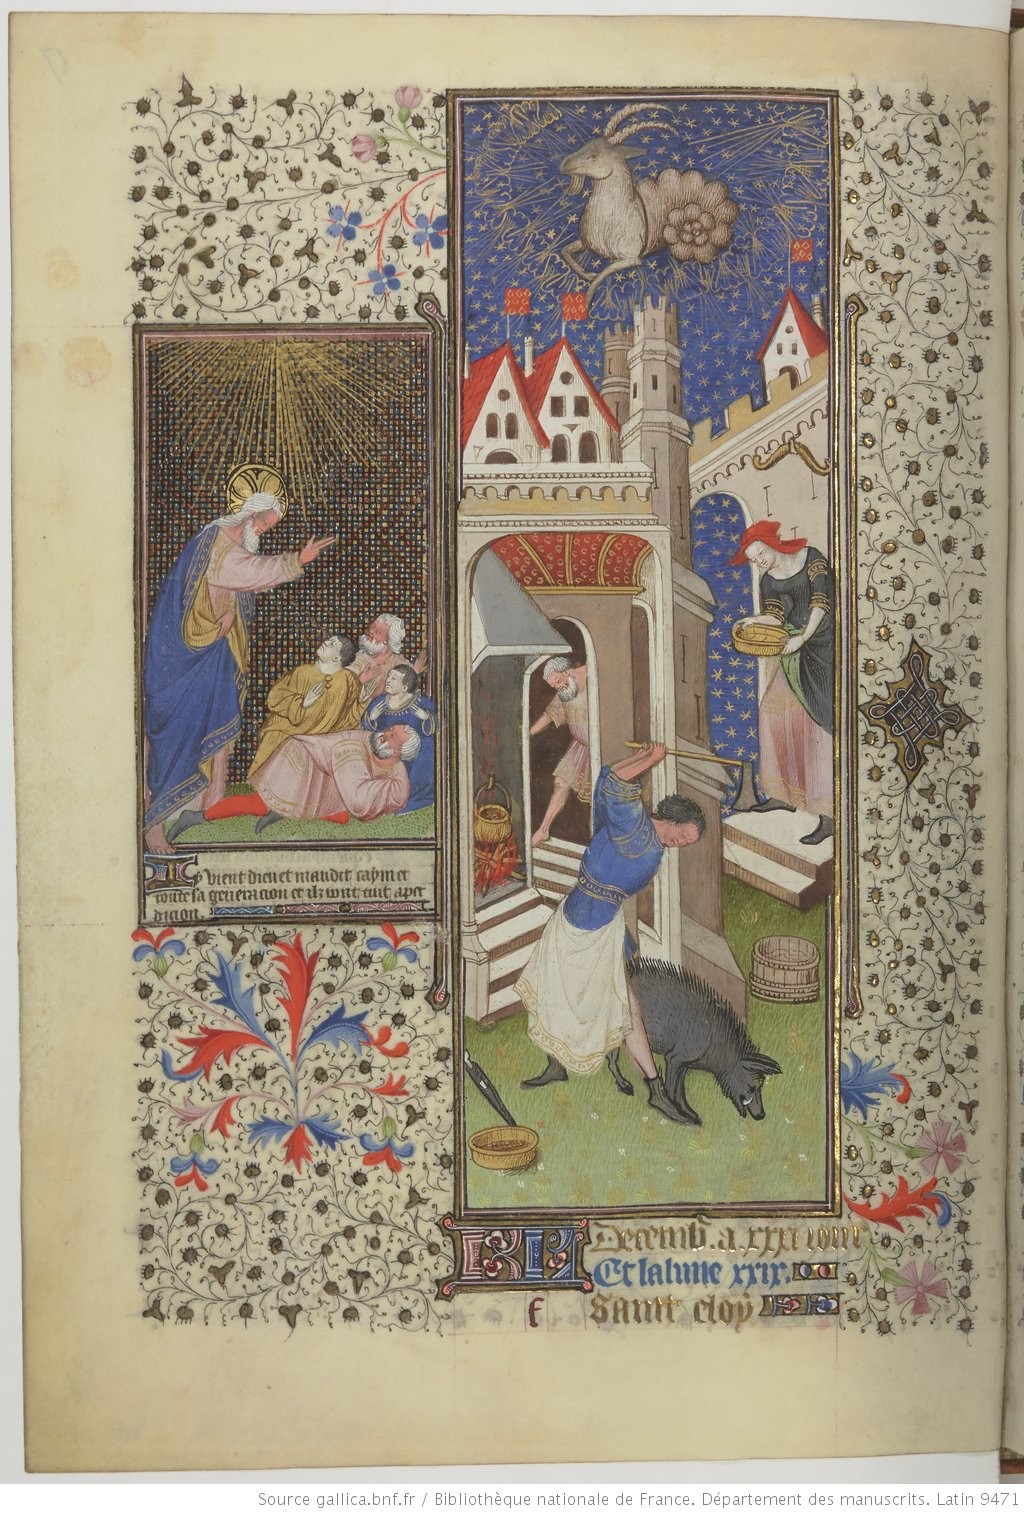 Cy vient dieu et maudit caym et
toute sa generacion et ilz vont tuit a per
dicion.
KL Decemb. a. xxxi iour
Et la lune xxix.
f Saint eloy
Source gallica.bnf.fr / Bibliothèque nationale de France. Département des manuscrits. Latin 9471